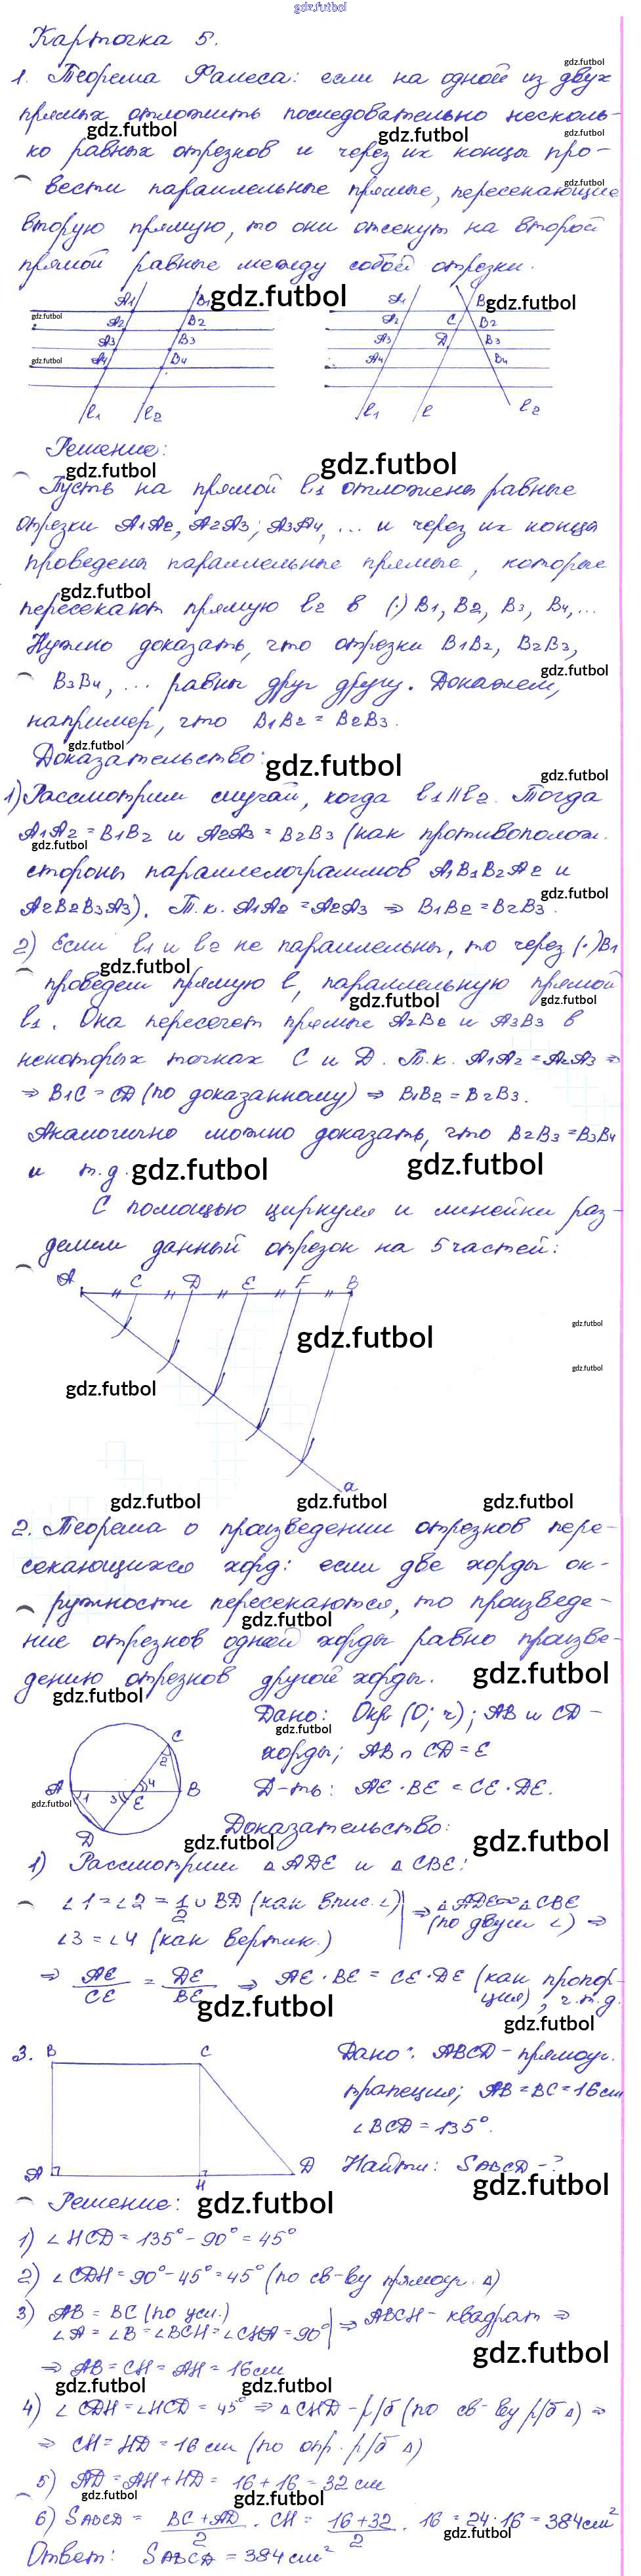 gdz.futbol
Карточка 5.
1. Теорема Фалеса: если на одной из двух
прямых отложить последовательно несколь-
ко равных отрезков и через их концы про-
вести параллельные прямые, пересекающие
вторую прямую, то они отсекут на второй
прямой равные между собой отрезки.
A1 B1 A1 B1
A2 B2 A2 C B2
A3 B3 A3 D B3
A4 B4 A4 B4
l1 l2 l1 l l2
Решение:
Пусть на прямой l1 отложены равные
отрезки A1A2, A2A3, A3A4, ... и через их концы
проведены параллельные прямые, которые
пересекают прямую l2 в (·) B1, B2, B3, B4,...
Нужно доказать, что отрезки B1B2, B2B3,
B3B4, ... равны друг другу. Докажем,
например, что B1B2 = B2B3.
Доказательство:
1) Рассмотрим случай, когда l1 || l2. Тогда
A1A2 = B1B2 и A2A3 = B2B3 (как противополож.
стороны параллелограммов A1B1B2A2 и
A2B2B3A3). Т.к. A1A2 = A2A3 ⇒ B1B2 = B2B3.
2) Если l1 и l2 не параллельны, то через (·) B1
проведем прямую l, параллельную прямой
l1. Она пересечет прямые A2B2 и A3B3 в
некоторых точках C и D. Т.к. A1A2 = A2A3 ⇒
⇒ B1C = CD (по доказанному) ⇒ B1B2 = B2B3.
Аналогично можно доказать, что B2B3 = B3B4
и т.д.
С помощью циркуля и линейки раз-
делим данный отрезок на 5 частей:
A C D E F B
a
2. Теорема о произведении отрезков пере-
секающихся хорд: если две хорды ок-
ружности пересекаются, то произведе-
ние отрезков одной хорды равно произве-
дению отрезков другой хорды.
Дано: Окр (O; r); AB и CD -
хорды; AB ∩ CD = E
Д-ть: AE · BE = CE · DE.
C
2
A 1 3 4 B
E
D
Доказательство:
1) Рассмотрим △ADE и △CBE:
∠1 = ∠2 = 1/2 ∪ BD (как впис. ∠) | ⇒ △ADE ∞ △CBE
∠3 = ∠4 (как вертик.) (по двум ∠) ⇒
⇒ AE/CE = DE/BE ⇒ AE · BE = CE · DE (как пропор-
ция), ч.т.д.
3. B C
A H D
Дано: ABCD - прямоуг.
трапеция; AB = BC = 16 см
∠BCD = 135°.
Найти: SABCD - ?
Решение:
1) ∠HCD = 135° - 90° = 45°
2) ∠CDH = 90° - 45° = 45° (по св-ву прямоуг. △)
3) AB = BC (по усл.)
∠A = ∠B = ∠BCH = ∠CHA = 90° | ⇒ ABCH - квадрат ⇒
⇒ AB = CH = AH = 16 см
4) ∠CDH = ∠HCD = 45° ⇒ △CHD - р/б (по св-ву р/б △) ⇒
⇒ CH = HD = 16 см (по опр. р/б △)
5) AD = AH + HD = 16 + 16 = 32 см
6) SABCD = BC + AD / 2 · CH = 16 + 32 / 2 · 16 = 24 · 16 = 384 см²
Ответ: SABCD = 384 см²